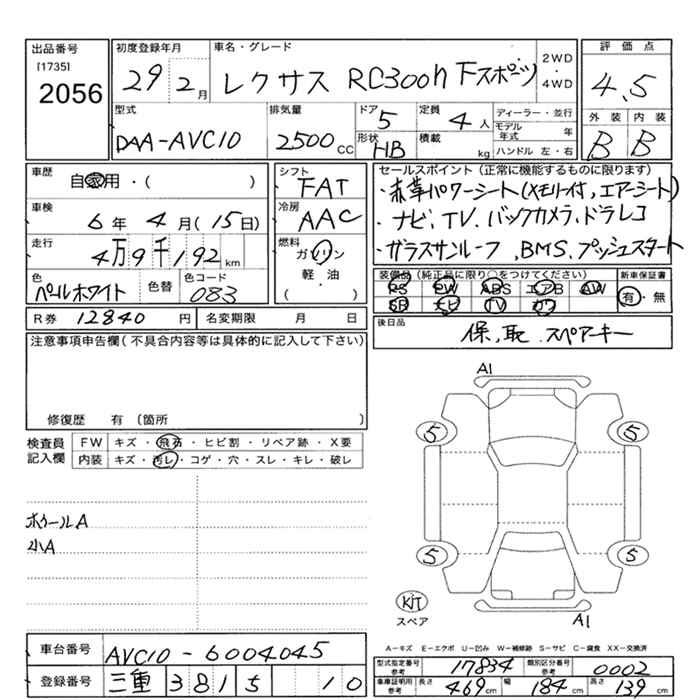 出品番号
[1735]
2056
初度登録年月
29 2月
車名・グレード
レクサス RC300h Fスポーツ
2WD・4WD
評価点
4.5
外装 内装
B B
型式
DAA-AVC10
排気量
2500 CC
ドア 5
形状 HB
定員 4人
積載 kg
ディーラー・並行
モデル年式 年
ハンドル 左・右
車歴
自家用・( )
車検
6年 4月(15日)
走行
4万9千192 km
色
パールホワイト
色替
色コード
083
シフト
FAT
冷房
AAC
燃料
ガソリン
軽・油
( )
セールスポイント(正常に機能するものに限ります)
・赤革パワーシート(メモリー付,エアーシート)
・ナビ、TV、バックカメラ、ドラレコ
・ガラスサンルーフ、BMS、プッシュスタート
装備品(純正品に限り○をつけてください)
新車保証書
PS PW ABS エアB AW
SR ナビ TV カワ
有・無
R券 12840 円
名変期限 月 日
後日品
保、取、スペアーキー
注意事項申告欄(不具合内容等は具体的に記入して下さい)
修復歴 有 〔箇所 〕
検査員記入欄
FW キズ・飛石・ヒビ割・リペア跡・X要
内装 キズ・汚レ・コゲ・穴・スレ・キレ・破レ
ホイールA
小A
A1
5 5
5 5
KIT
スペア
A1
A−キズ E−エクボ U−凹み W−補修跡 S−サビ C−腐食 XX−交換済
車台番号 AVC10-6004045
登録番号 三重 3815 10
型式指定番号参考 17834 類別区分番号参考 0002
車庫証明用参考 長さ 469cm 幅 184cm 高さ 139cm